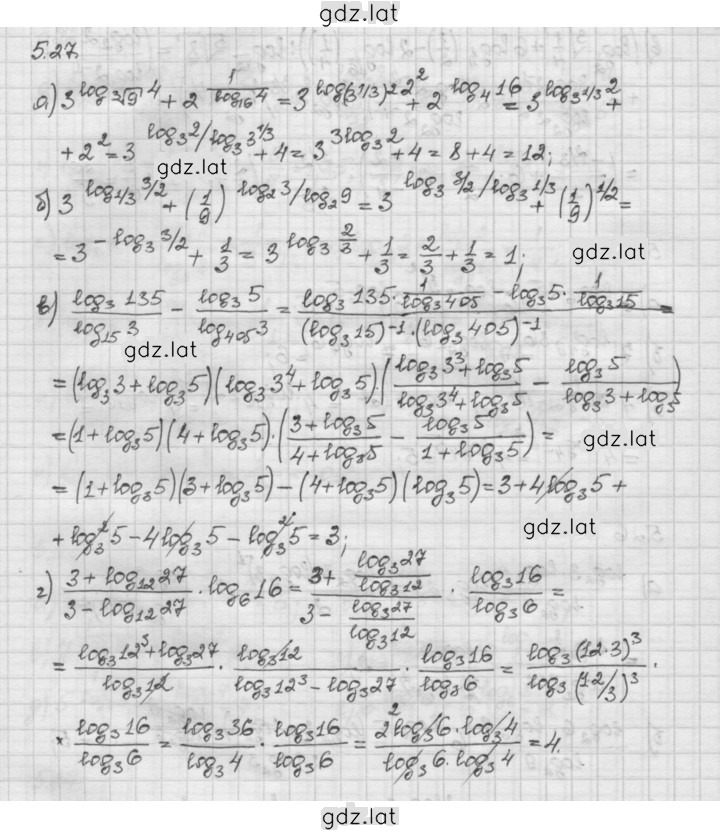 gdz.lat
5.27.
а) 3^{log_{∛9} 4} + 2^{1/log_{16} 4} = 3^{log_{(3^{1/3})^2} 2^2} + 2^{log_4 16} = 3^{log_{3^{1/3}} 2} +
+ 2^2 = 3^{log_3 2/log_3 3^{1/3}} + 4 = 3^{3log_3 2} + 4 = 8 + 4 = 12;
gdz.lat
б) 3^{log_{1/3} 3/2} + (1/9)^{log_2 3/log_2 9} = 3^{log_3 3/2/log_3 1/3} + (1/9)^{1/2} =
= 3^{-log_3 3/2} + 1/3 = 3^{log_3 2/3} + 1/3 = 2/3 + 1/3 = 1;
gdz.lat
в) log_3 135/log_{15} 3 − log_3 5/log_{405} 3 = (log_3 135 · 1/log_3 405 − log_3 5 · 1/log_3 15)/((log_3 15)^{-1} · (log_3 405)^{-1}) =
gdz.lat
= (log_3 3 + log_3 5)(log_3 3^4 + log_3 5) · ((log_3 3^3 + log_3 5)/(log_3 3^4 + log_3 5) − log_3 5/(log_3 3 + log_3 5))
= (1 + log_3 5)(4 + log_3 5) · ((3 + log_3 5)/(4 + log_3 5) − log_3 5/(1 + log_3 5)) =
gdz.lat
= (1 + log_3 5)(3 + log_3 5) − (4 + log_3 5)(log_3 5) = 3 + 4log_3 5 +
+ log_3^2 5 − 4log_3 5 − log_3^2 5 = 3;
gdz.lat
г) (3 + log_{12} 27)/(3 − log_{12} 27) · log_6 16 = (3 + log_3 27/log_3 12)/(3 − log_3 27/log_3 12) · log_3 16/log_3 6 =
= (log_3 12^3 + log_3 27)/log_3 12 · log_3 12/(log_3 12^3 − log_3 27) · log_3 16/log_3 6 = log_3 (12·3)^3/log_3 (12/3)^3 ·
gdz.lat
× log_3 16/log_3 6 = log_3 36/log_3 4 · log_3 16/log_3 6 = 2^2 log_3 6 · log_3 4/(log_3 6 · log_3 4) = 4.
gdz.lat